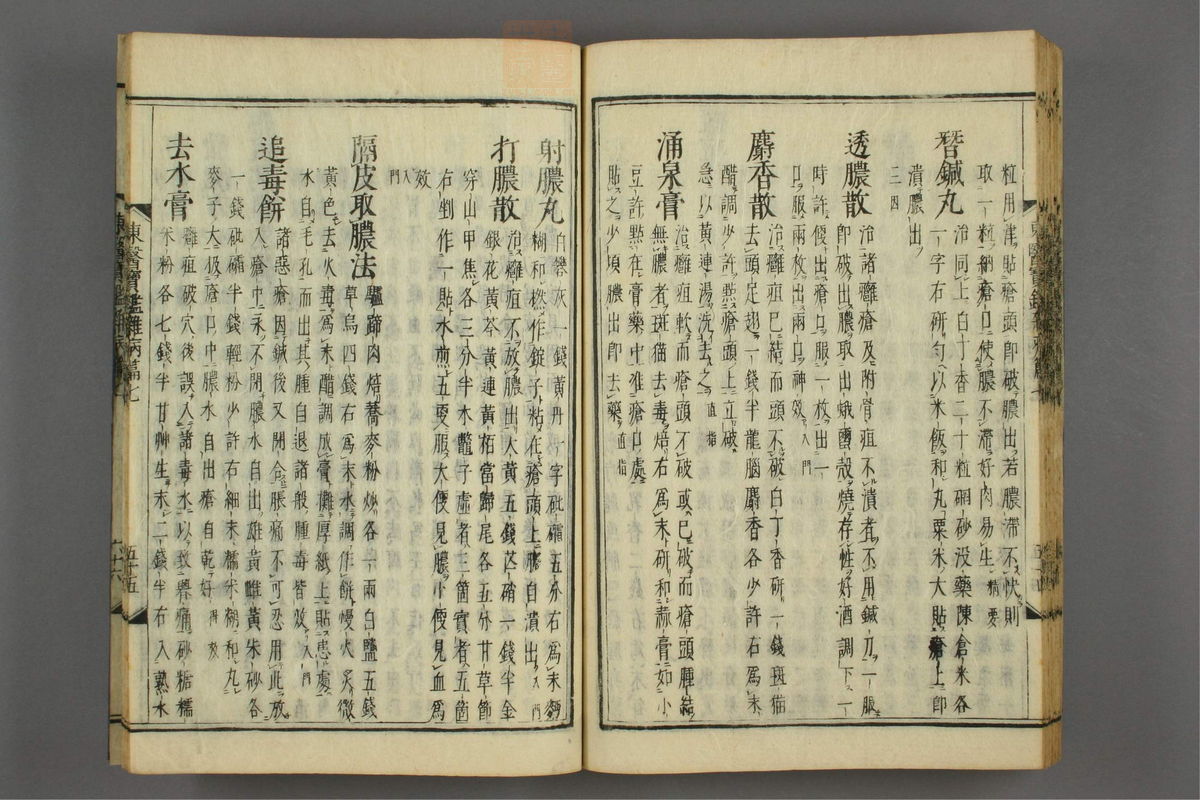 粒用津貼瘡頭卽破膿出若膿滯不快則
取一粒納瘡口使膿不滯好肉易生精要
替鍼丸
治同上白丁香二十粒硇砂没藥陳倉米各
一字右硏勻以米飯和丸粟米大貼瘡上卽
潰膿出
三四
透膿散
治諸癰瘡及附骨疽不潰者不用鍼刀一服
卽破出膿取出蛾蠒殼燒存性好酒調下一
時許便出瘡口服一枚出一
口服兩枚出出兩口神效入門
麝香散
治癰疽已結而頭不破白丁香硏一錢斑猫
去頭足翅一錢半龍腦麝香各少許右爲末
醋調少許點瘡頭上立破
急以黃連湯洗去之直指
涌泉膏
治癰疽軟而瘡頭不破或已破而瘡頭腫結
無膿者斑猫去毒焙右爲末硏和蒜膏如小
豆許點在膏藥中准瘡口處
貼之少頃膿出卽去藥直指
射膿丸
白礬灰一錢黃丹一字砒礵五分右爲末麪
糊和撚作錠子粘在瘡頭上膿自潰出入門
打膿散
治癰疽不放膿出大黃五錢芒硝一錢半金
銀花黃芩黃連黃栢當歸尾各五分甘草節
穿山甲焦各三分半木鱉子虛者三箇實者五箇
右剉作一貼水煎五更服大便見膿小便見血爲
效入門
隔皮取膿法
驢蹄肉焙蕎麥粉炒各一兩白鹽五錢
草烏四錢右爲末水調作餠慢火炙微
黃色去火毒爲末醋調成膏攤厚紙上貼患處
水自毛孔而出其腫自退諸般腫毒皆效入門
追毒餠
諸惡瘡因鍼後又閉合脹痛不可忍用此放
入瘡中永不閉膿水自出雄黃雌黃朱砂各
一錢砒礵半錢輕粉少許右細末糯米糊和丸
麥子大扱瘡口中膿水自出瘡自乾好
去水膏
癰疽破穴後誤入諸毒水以致瘴痛砂糖糯
米粉各七錢半甘艸生末二錢半右入熟水
東醫寶鑑雜病篇七
五十五